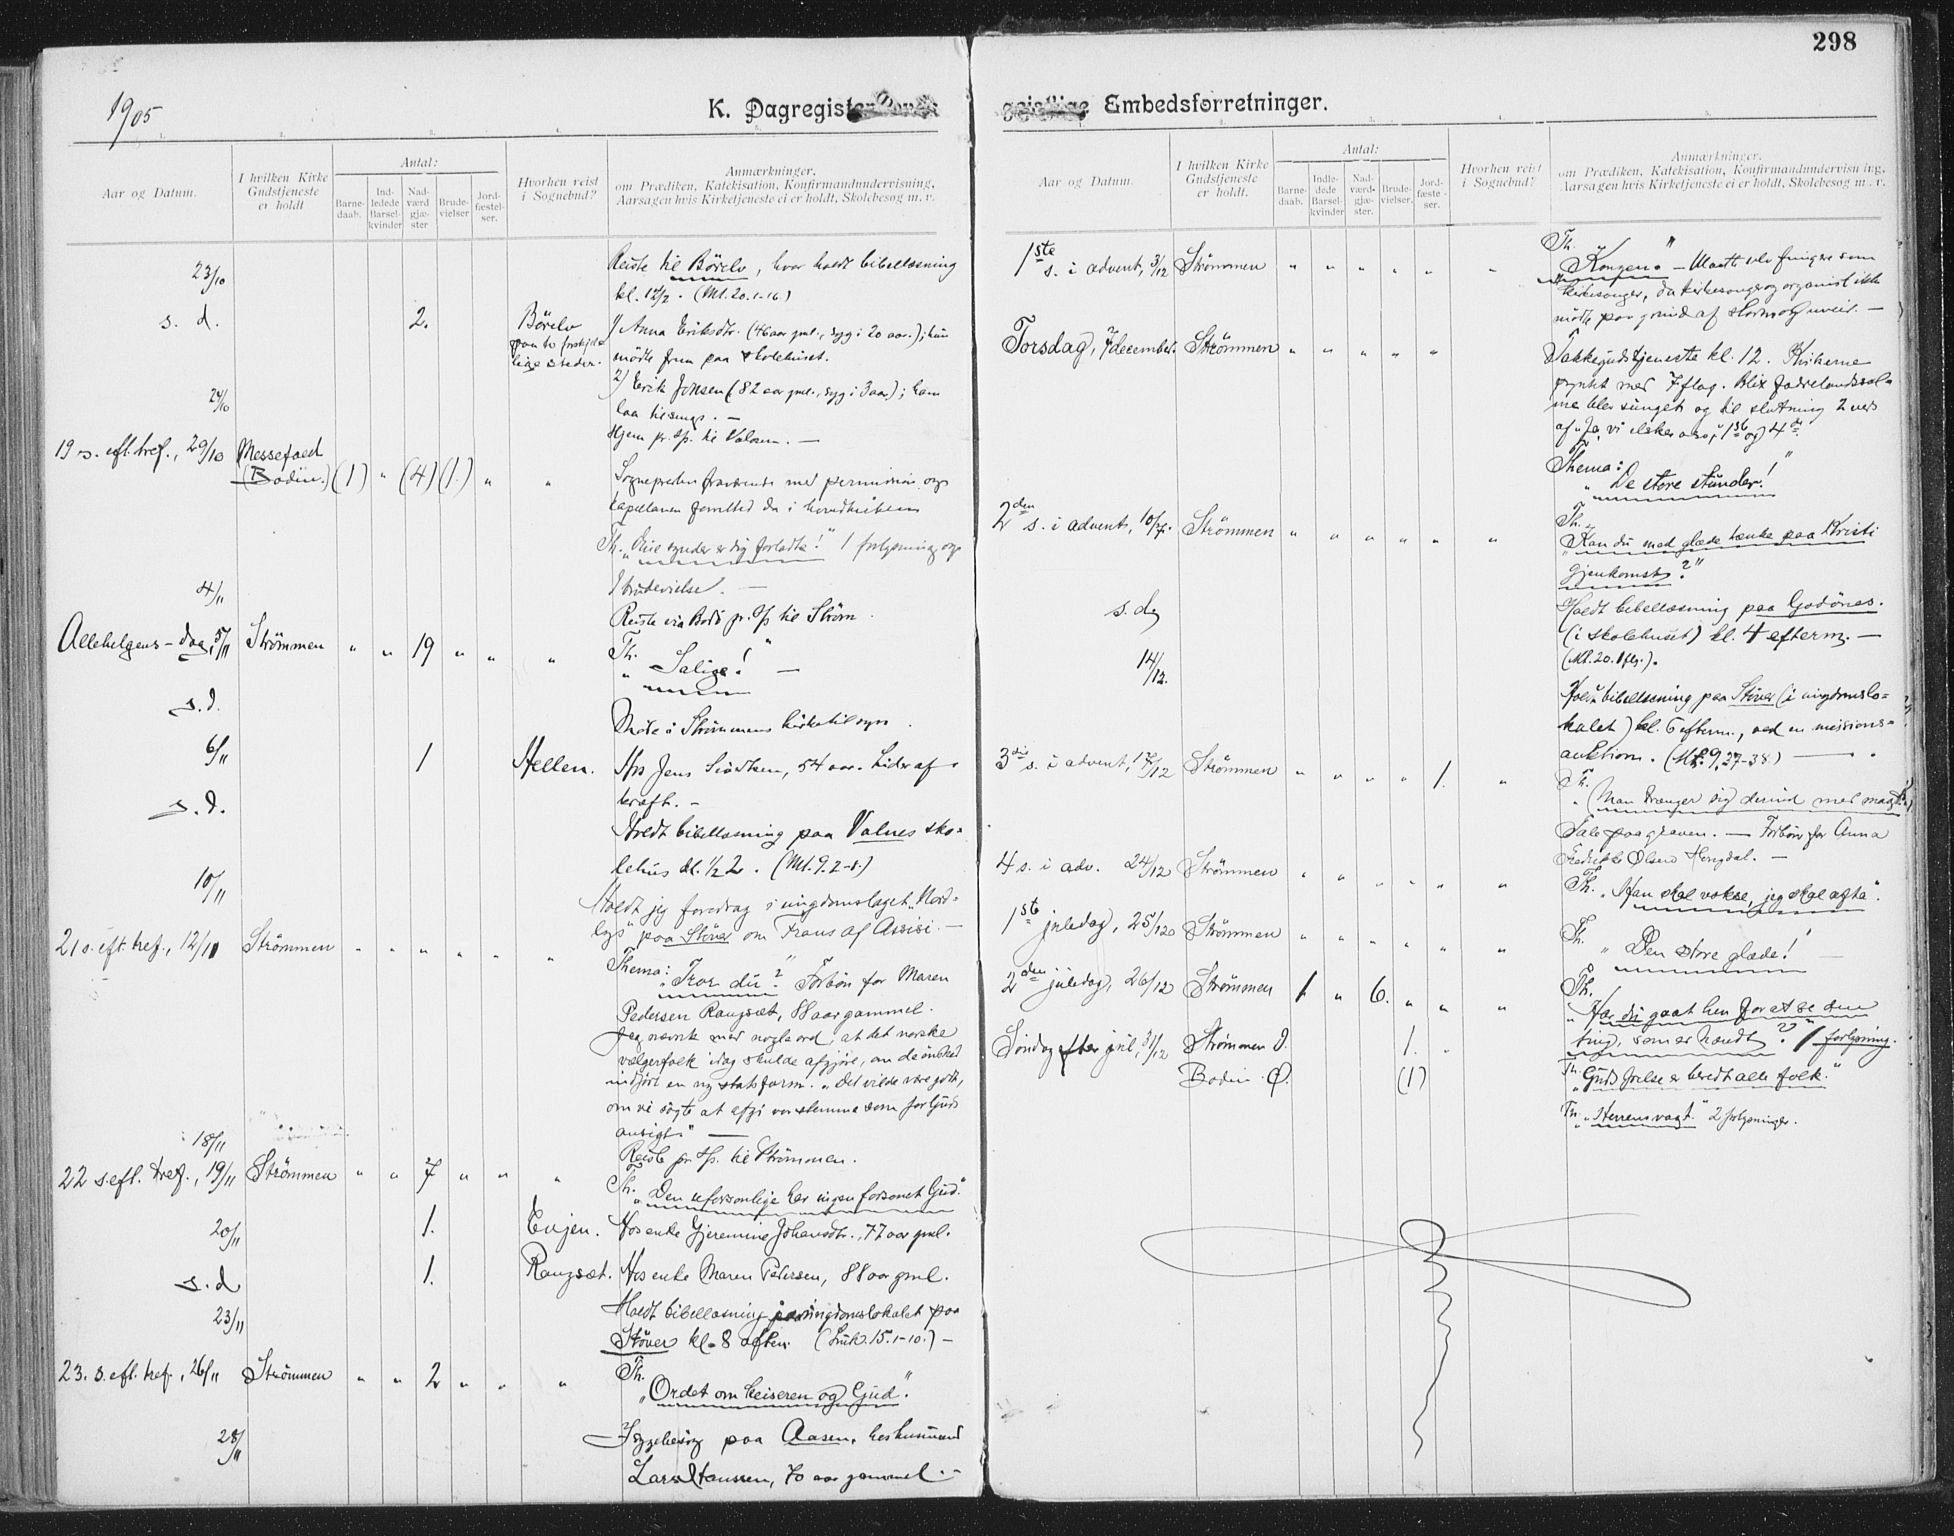 298
1905
K. Dagregister
geistlige Embedsforretninger.
1. 2. 3. 4. 5.
Aar og Datum.
I hvilken Kirke Gudstjeneste er holdt
Antal:
Barnedaab.
Indledede Barselkvinder
Nadværdgjæster
Brudevielser
Jordfæstelser.
Hvorhen reist i Sognebud?
Anmærkninger.
om Prædiken, Katekisation, Konfirmandundervisning,
Aarsagen hvis Kirketjeneste ei er holdt, Skolebesøg m. v.
23/10 Reiste til Börelv, hvor holdt bibellæsning
kl. 12½. (Mt. 20. 1-16)
s. d. 2. Börelv 1) Anna Eriksdtr. (46 aar gml., syg i 20 aar.); hun
paa to forskjel-
lige steder. mödte frem paa skolehuset.
2) Erik Johsen (82 aar gml., syg i 3 aar); han
24/10 laa tilsengs. —
Hjem pr. d/s. til Valosen. —
19 s. eft. tref., 29/10 Messefald
(Bodin.) (1) " (4) (1.) " " Sognepresten fraværende med permission og
kapellanen forretted da i hovedkirken
Th. "Dine synder er dig forladte!" 1 forlysning og
1 brudevielse. —
4/11 Reiste via Bodö pr. d/s til Ström.
Allehelgens-dag, 5/11 Strömmen " " 19 " " " Th.
"Salige!" —
s. d. Möte i Strömmens kirketilsyn.
6/11 1 Hellen. Hos Jens Sivertsen, 54 aar. Lider af
kræft. —
s. d. Holdt bibellæsning paa Valnes sko-
lehus kl. ½2. (Mt. 9. 2-8)
10/11 Holdt jeg foredrag i ungdomslaget "Nord-
lys" paa Stöver om Frans af Assisi. —
21 s. eft. tref., 12/11 Strömmen " " " " " " Thema:
"Tror du?" Forbön for Maren
Pedersen Rangsæt, 88 aar gammel.
Jeg nævnte med nogle ord, at det norske
vælgerfolk idag skulde afgjöre, om de önsked
indfört en ny statsform. "Det vilde være godt,
om vi sögte at afgi vor stemme som for Guds
ansigt." —
18/11 Reiste pr. d/s. til Strömmen.
22 s. eft. tref., 19/11 Strömmen " " 7 " " " Th.
"Den uforsonlige har ingen forsonet Gud."
20/11 1. Evjen. Hos enke Gjeremine Johansdtr., 77 aar gml.
s. d 1. Rangsæt. Hos enke Maren Pedersen, 88 aar gml.
23/11 Holdt bibellæsning i ungdomslokalet paa
Stöver kl. 8 aften. (Luk. 15. 1-10.) —
23. s. eft. tref., 26/11 Strömmen " " 2 " " " Th.
"Ordet om keiseren og Gud".
28/11 Sygebesög paa Aasen, hos husmand
Lars Hanssen, 70 aar gammel. —
Aar og Datum.
I hvilken Kirke Gudstjeneste er holdt.
Antal:
Barnedaab.
Indledede Barselkvinder
Nadværdgjæster.
Brudevielser.
Jordfæstelser.
Hvorhen reist i Sognebud?
Anmærkninger.
om Prædiken, Katekisation, Konfirmandundervisning,
Aarsagen hvis Kirketjeneste ei er holdt, Skolebesøg m. v.
1ste s. i advent, 3/12 Strömmen " " " " " " Th.
"Kongen." — Maatte selv fungere som
kirkesanger, da kirkesanger og organist ikke
mötte paa grund af storm og uveir. —
Torsdag, 7 december. Strömmen " " " " " Takkegudstjeneste kl. 12. Kirkerne
pyntet med 7 flag. Blix fædrelandssal-
me blev sunget og til slutning 2 vers
af "Ja, vi elsker osv.", 1ste og 4de.
Thema:
"De store stunder!"
2den s. i advent, 10/12. Strömmen " " " " " " Th.
"Kan du med glæde tænke paa Kristi
gjenkomst?"
s. dg Holdt bibellæsning paa Godönes.
(i skolehuset) kl. 4 efterm. —
(Mt. 20. 1 flg.).
14/12. Holdt bibellæsning paa Stöver (i ungdomslo-
kalet) kl. 6 efterm., ved en missions-
auktion. (Mt. 9. 27-38) —
3die s. i advent, 17/12 Strömmen " " " " 1. " Th.
"Man trænger sig derind med magt."
Tale paa graven. — Forbön for Anna
Fredrikke Olsen Hengdal. —
4 s. i adv. 24/12 Strömmen " " " " " " Th. "Han skal vokse, jeg skal afta".
1ste juledag, 25/12 Strömmen " " " " " " Th.
"Den store glæde!" —
2den juledag, 26/12 Strömmen 1 " 6. " " " Th.
"Har du gaat hen for at se den
ting, som er hændt?" 1 forlysning.
Söndag efter jul, 31/12 Strömmen 1. " Th. "Guds frelse er beredt alle folk."
Bodin (1) Th. "Herrens vagt." 2 forlysninger.